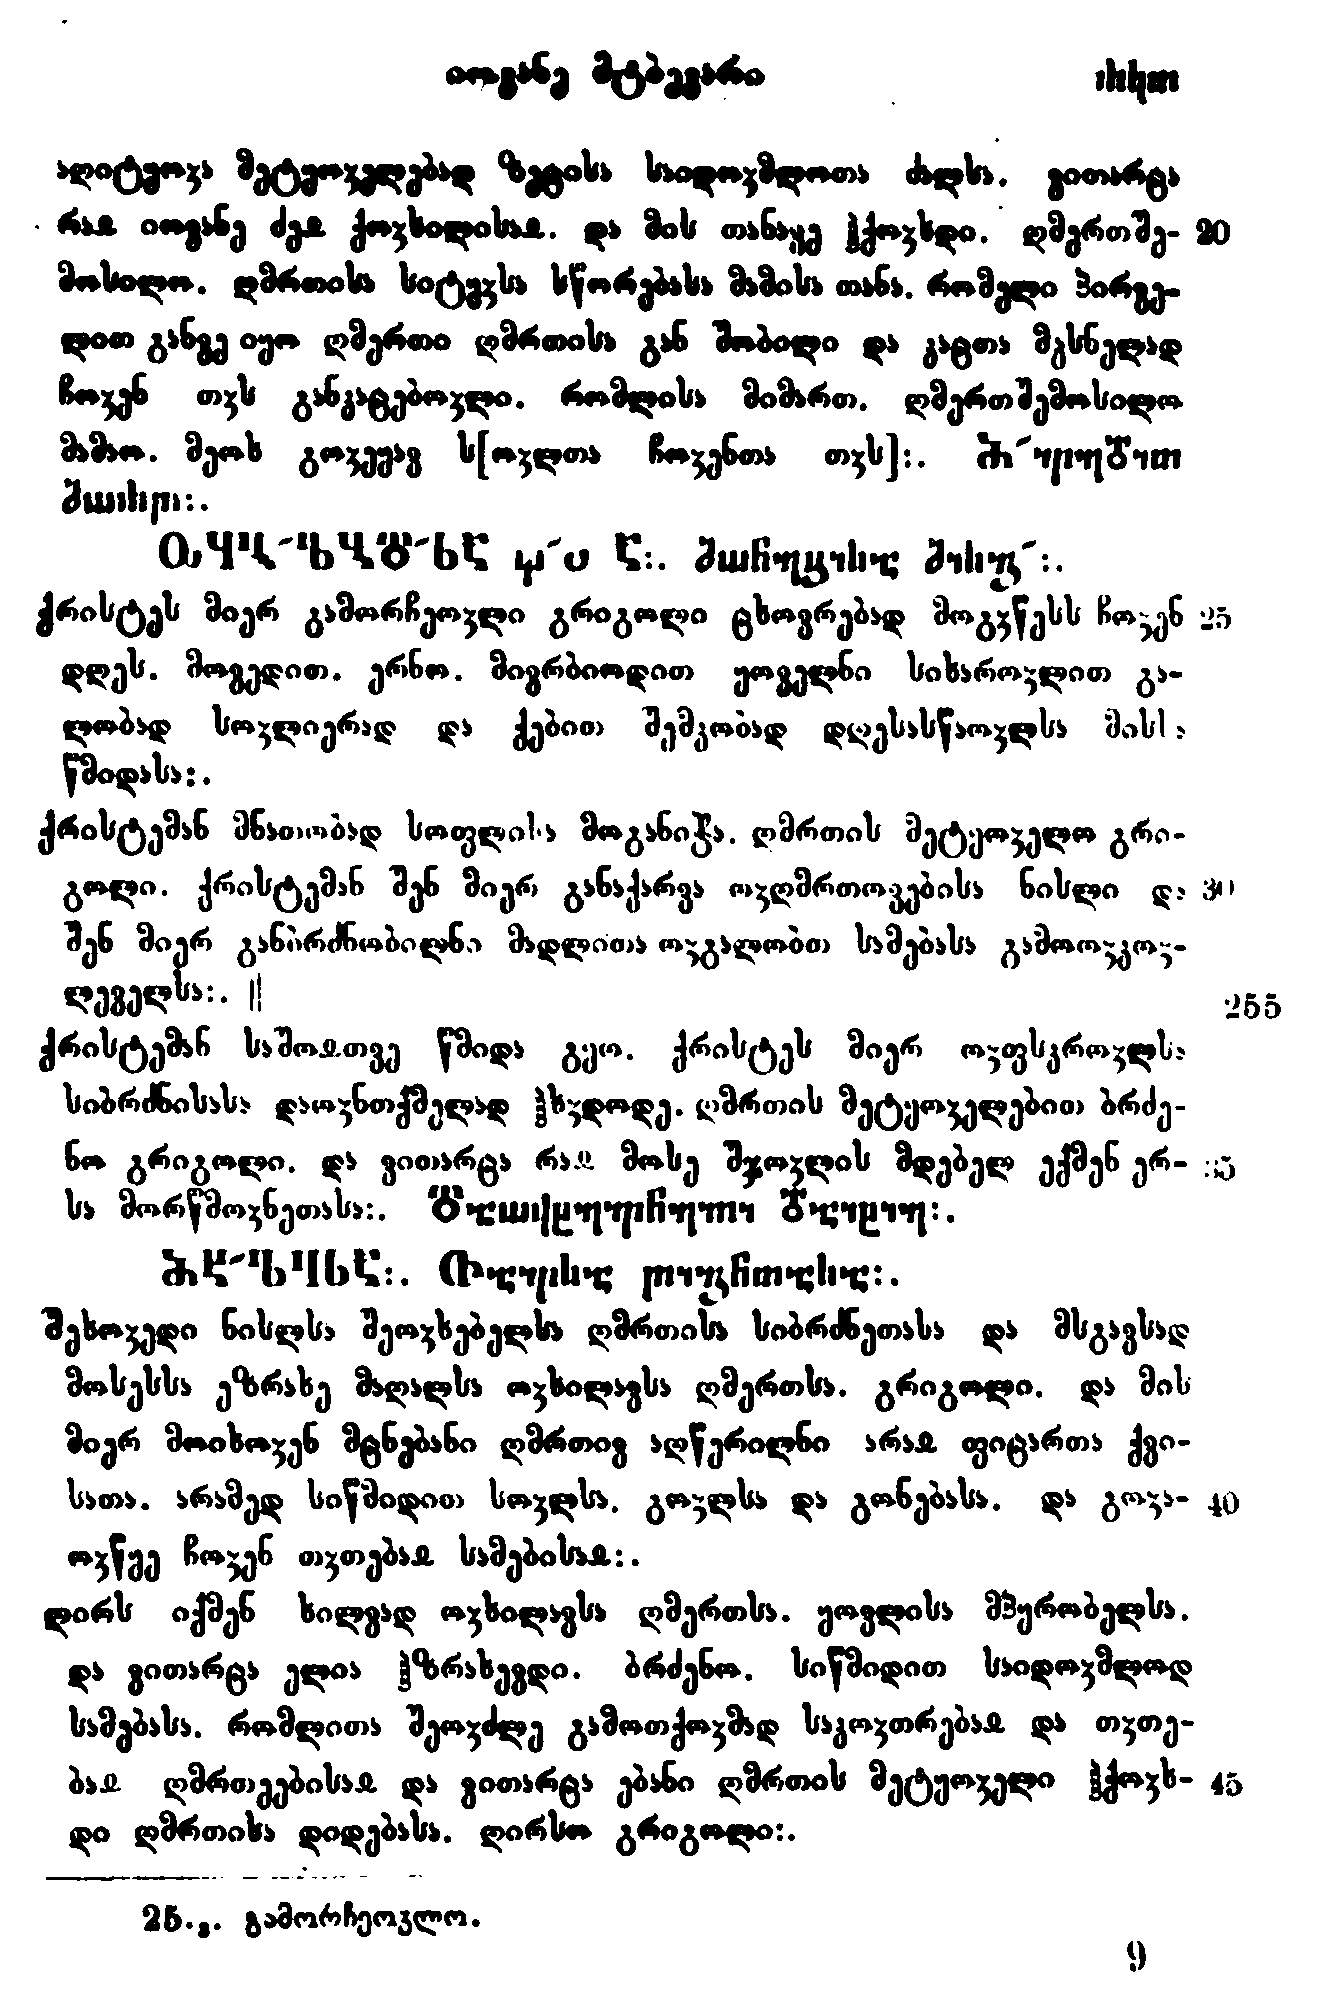 იოვანე მტბევარი
აღიტყოჳა მეტყოჳელებად ზეცისა საიდოჳმლოთა ძალსა. ვითარცა
რაჲ იოვანე ძეჲ ქოჳხილისაჲ. და მის თანაყე ჰქოჳხდი. ღმერთშე- 20
მოსილო. ღმრთისა სიტყჳსა სწორებასა მამისა თანა. რომელი პირვე-
ლით განვე იყო ღმერთი ღმრთისა გან შობილი და კაცთა მჴსნელად
ჩოჳენ თჳს განკაცებოჳლი. რომლისა მიმართ. ღმერთშემოსილო
მამაო. მეოხ გოჳეყავ ს[ოჳლთა ჩოჳენთა თჳს]:.
ქრისტეს მიერ გამორჩეოჳლი გრიგოლი ცხოვრებად მოგჳწესს ჩოჳენ 25
დღეს. მოვედით. ერნო. მივრბიოდით ყოველნი სიხაროჳლით გა-
ლობად სოჳლიერად და ქებით შემკობად დღესასწაოჳლსა მისსა
წმიდასა:.
ქრისტემან მნათობად სოფლისა მოგანიჭა. ღმრთის მეტყოჳელო გრი-
გოლი. ქრისტემან შენ მიერ განაქარვა ოჳღმრთოვებისა ნისლი და 30
შენ მიერ განბრძნობილნი მადლითა ოჳგალობთ სამებასა გამოოჳკოჳ-
ლეველსა:. || 255
ქრისტემან საშოჲთვე წმიდა გყო. ქრისტეს მიერ ოჳფსკროჳლსა
სიბრძნისასა დაოჳნთქმელად ჰხჳდოდე. ღმრთის მეტყოჳელებით ბრძე-
ნო გრიგოლი. და ვითარცა რაჲ მოსე შჯოჳლის მდებელ ექმენ ერ- 35
სა მორწმოჳნეთასა:.
შეხოჳედი ნისლსა შეოჳხებელსა ღმრთისა სიბრძნეთასა და მსგავსად
მოსესსა ეზრახე მაღალსა ოჳხილავსა ღმერთსა. გრიგოლი. და მის
მიერ მოიხოჳენ მცნებანი ღმრთივ აღწერილნი არაჲ ფიცართა ქვი-
სათა. არამედ სიწმიდით სოჳლსა. გოჳლსა და გონებასა. და გოჳა- 40
ოჳწყე ჩოჳენ თჳთებაჲ სამებისაჲ:.
ღირს იქმენ ხილვად ოჳხილავსა ღმერთსა. ყოვლისა მპყრობელსა.
და ვითარცა ელია ჰზრახევდი. ბრძენო. სიწმიდით საიდოჳმლოდ
სამებასა. რომლითა შეოჳძლე გამოთქოჳმად საკოჳთრებაჲ და თჳთე-
ბაჲ ღმრთეებისაჲ და ვითარცა ებანი ღმრთის მეტყოჳელი ჰქოჳხ- 45
დი ღმრთისა დიდებასა. ღირსო გრიგოლი:.
25. გამორჩეოჳლო.
9